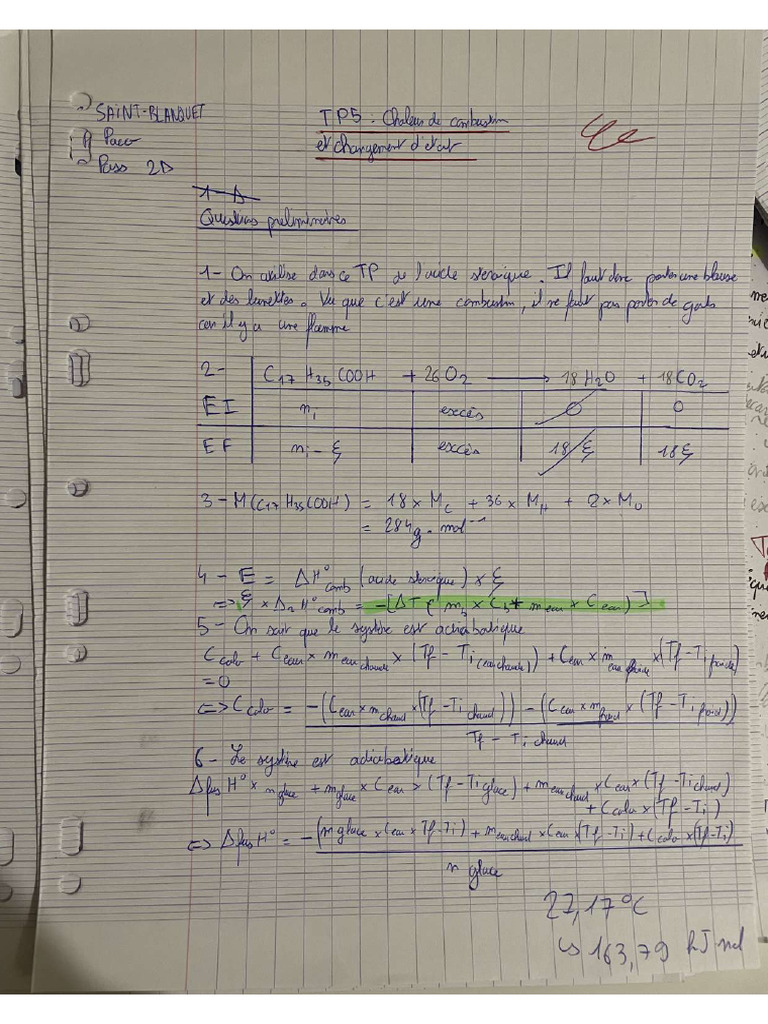 SAINT-BLANQUET
TP5 : Chaleur de combustion
Paco
et changement d'etat
Pass 2D
1 - A
Questions preliminaires
1- On utilise dans ce TP de l'acide stéarique. Il faut donc porter une blouse
et des lunettes. Vu que c'est une combustion, il ne faut pas porter de gants
car il y a une flamme
2- C17 H35 COOH + 26 O2 → 18 H2O + 18 CO2
EI ni excès 0 0
EF ni - ξ excès 18 ξ 18 ξ
3 - M(C17H35COOH) = 18 × MC + 36 × MH + 2 × MO
= 284 g. mol⁻¹
4 - E = ΔH°comb (acide stéarique) × ξ
=> ξ × ΔrH°comb = -[ΔT ( mb × Cb + meau × Ceau)]
5 - On sait que le système est adiabatique
Ccalo + Ceau × meau chaude × (Tf - Ti(eau chaude)) + Ceau × meau froide × (Tf - Ti froide)
= 0
<=> Ccalo = -(Ceau × mchaud × (Tf - Ti chaud)) - (Ceau × mfroid × (Tf - Ti froid))
Tf - Ti chaud
6 - Le système est adiabatique
Δfus H° × nglace + mglace × Ceau × (Tf - Ti glace) + meau chaud × Ceau × (Tf - Ti chaud)
+ Ccalo × (Tf - Ti)
<=> Δfus H° = -(mglace × Ceau × Tf - Ti) + meau chaud × Ceau × (Tf - Ti) + Ccalo × (Tf - Ti)
n glace
27,17°C
↳ 163,79 kJ mol